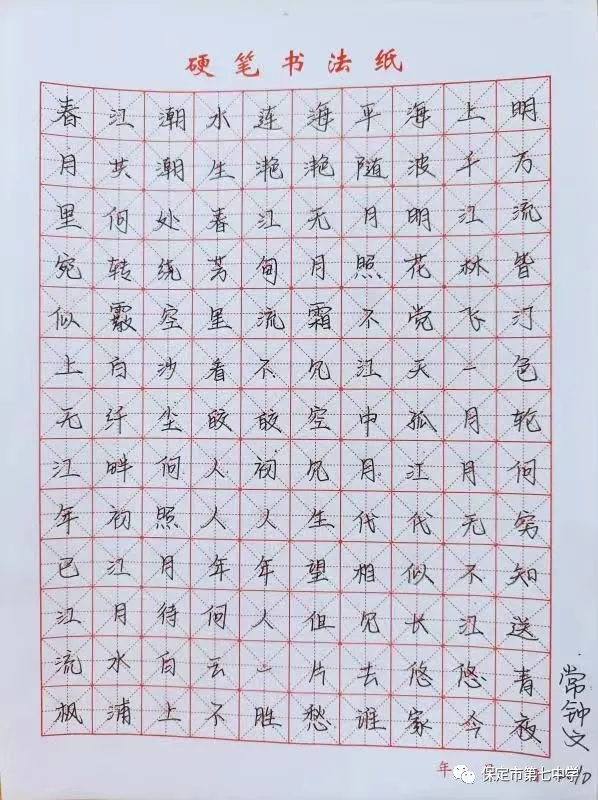 硬笔书法纸
春江潮水连海平海上明
月共潮生滟滟随波千万
里何处春江无月明江流
宛转绕芳甸月照花林皆
似霰空里流霜不觉飞汀
上白沙看不见江天一色
无纤尘皎皎空中孤月轮
江畔何人初见月江月何
年初照人人生代代无穷
已江月年年望相似不知
江月待何人但见长江送
流水白云一片去悠悠青
枫浦上不胜愁谁家今夜
常钟文
年
保定市第七中学